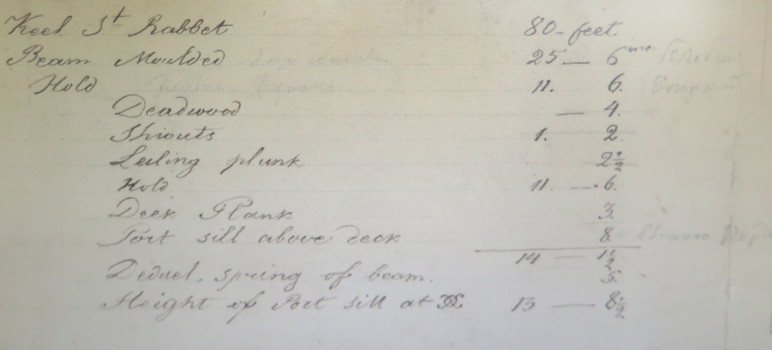 Keel St Rabbet 80 - feet.
Beam Moulded 25 — 6 ins.
Hold 11. 6.
Deadwood — 4.
Throats 1. 2.
Ceiling plank 2½
Hold 11. — 6.
Deck Plank 3.
Port sill above deck 8
14 — 1½
Deduct. spring of beam. 5.
Height of Port sill at 13 — 8½